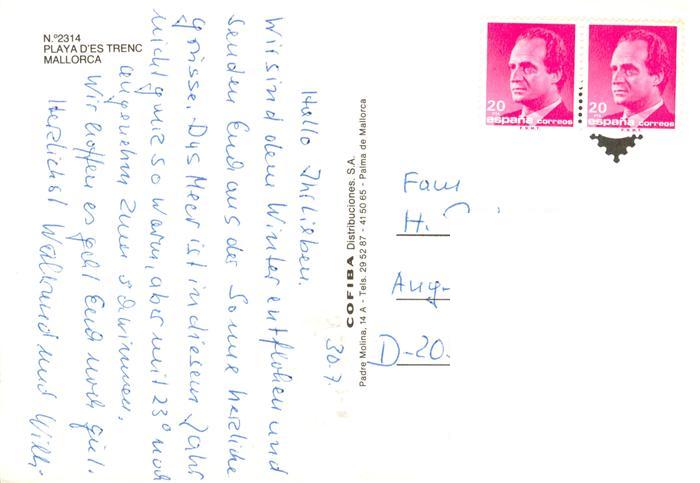 N.º2314
PLAYA D'ES TRENC
MALLORCA
30.7.
Hallo Ihr Lieben.
Wir sind dem Winter entflohen und
senden Euch aus der Sonne herzliche
Grüsse. Das Meer ist in diesem Jahr
nicht ganz so warm, aber mit 23° noch
angenehm zum schwimmen.
Wir hoffen es geht Euch noch gut.
Herzlichst Waltraud und Willi
COFIBA Distribuciones. S.A.
Padre Molina, 14 A - Tels. 29 52 87 - 41 50 65 - Palma de Mallorca
20
PTA
españa correos
F.N.M.T.
20
PTA
españa correos
F.N.M.T.
Fam
H.
Aug-
D-20.